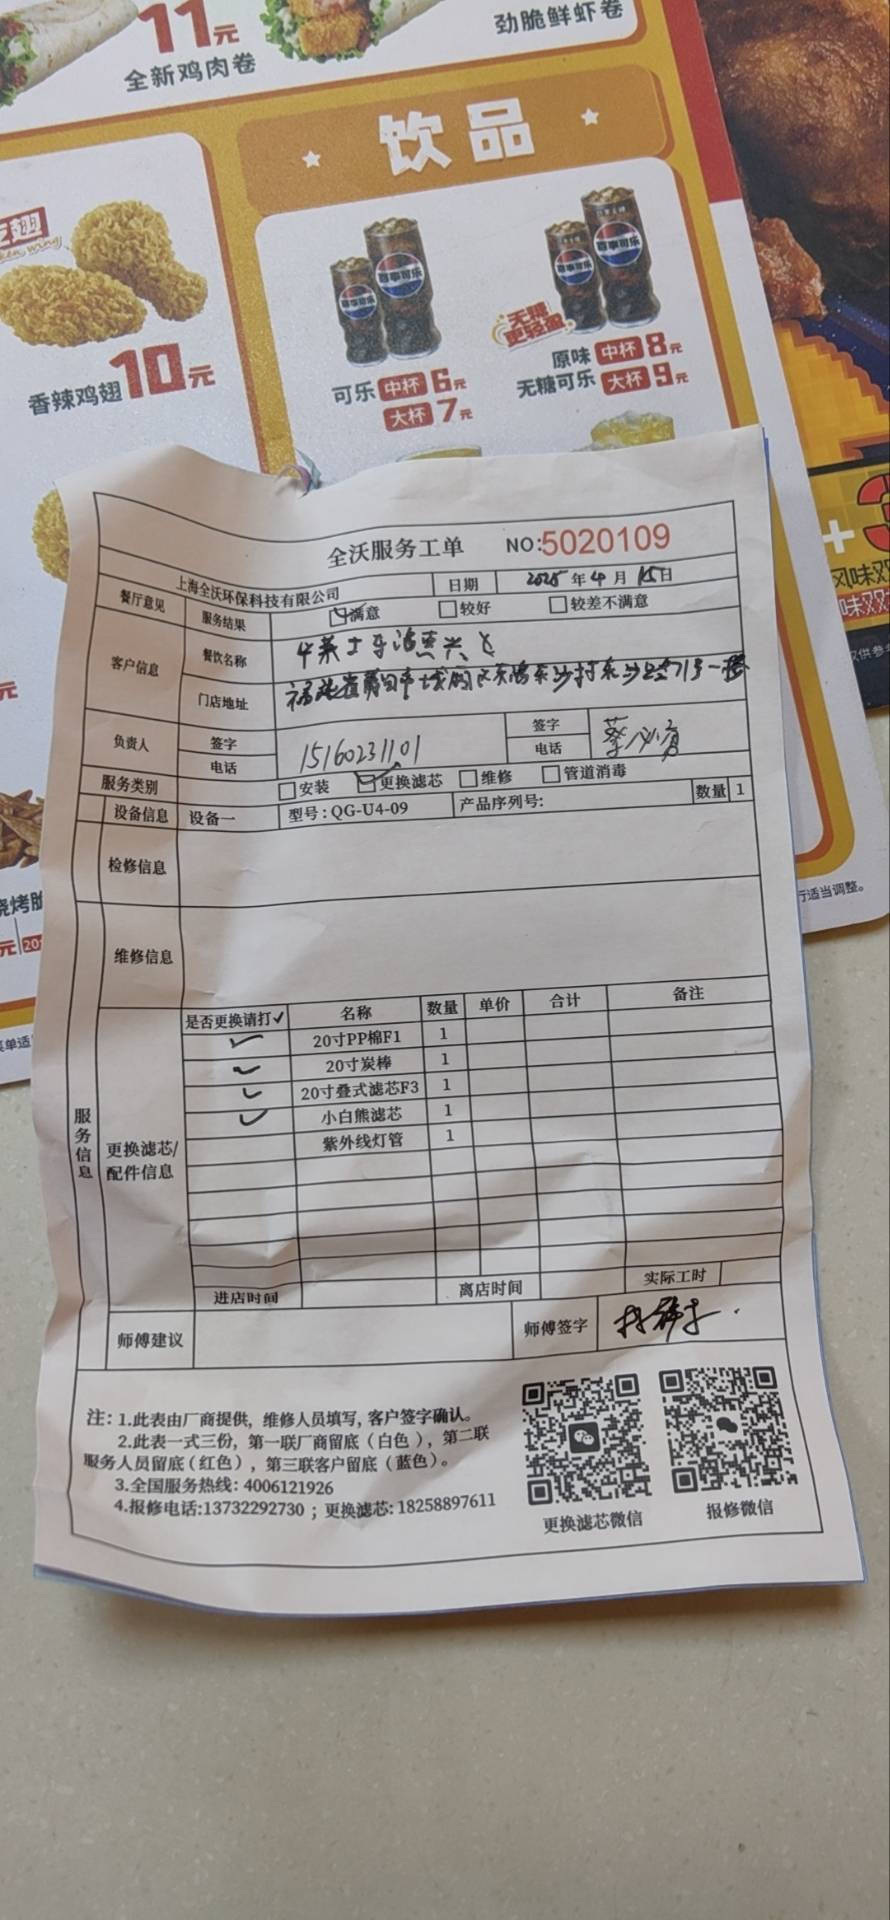 11元
全新鸡肉卷
劲脆鲜虾卷
饮品
香辣鸡翅10元
百事可乐
百事可乐
百事可乐
百事可乐
无糖
更轻盈
可乐 中杯6元
大杯7元
原味 中杯8元
无糖可乐 大杯9元
全沃服务工单 NO:5020109
上海全沃环保科技有限公司 日期 2025年4月15日
餐厅意见 服务结果 满意 较好 较差不满意
客户信息 餐饮名称 华莱士
门店地址 福建省莆田市城厢区
负责人 签字 电话 15160231101 签字 电话 蔡
服务类别 安装 更换滤芯 维修 管道消毒
设备信息 设备一 型号:QG-U4-09 产品序列号: 数量 1
检修信息
维修信息
服务信息
更换滤芯/
配件信息
是否更换请打✓ 名称 数量 单价 合计 备注
✓ 20寸PP棉F1 1
✓ 20寸炭棒 1
✓ 20寸叠式滤芯F3 1
✓ 小白熊滤芯 1
紫外线灯管 1
进店时间 离店时间 实际工时
师傅建议 师傅签字
注: 1.此表由厂商提供, 维修人员填写, 客户签字确认。
2.此表一式三份, 第一联厂商留底(白色), 第二联
服务人员留底(红色), 第三联客户留底(蓝色)。
3.全国服务热线: 4006121926
4.报修电话:13732292730 ; 更换滤芯: 18258897611
更换滤芯微信
报修微信
行适当调整。